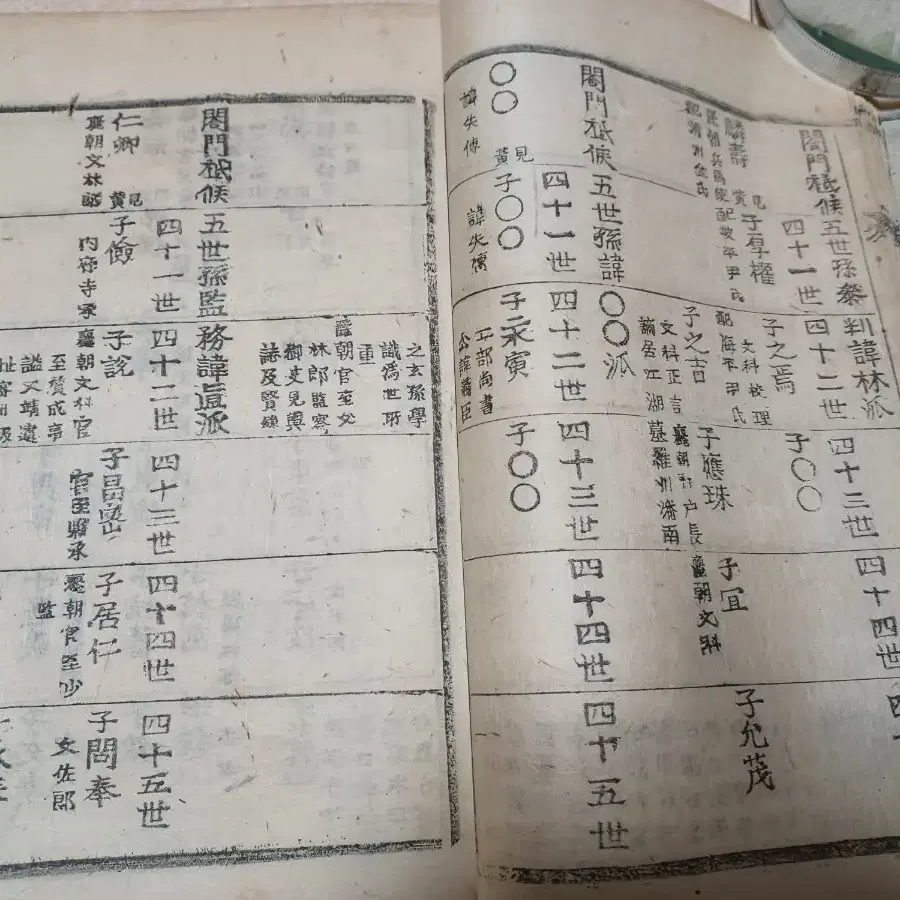 閤門祗候五世孫泰判諱林派
四十一世
四十二世
四十三世
四十四世
麟壽
見黃
子厚權
子之焉
文科校理
配海平尹氏
子之吉
文科正言
謫居江湖
子○○
子應珠
墓羅州潘南
子冝
麗朝文科
子允茂
閤門祗候五世孫諱○○派
四十一世
四十二世
四十三世
四十四世
四十五世
○○
見黃
諱失傳
子○○
諱失傳
子永寅
工部尚書
公諱藎臣
子○○
之玄孫學
識爲世所
重
麗朝官至文
林郎監察
御史見輿
誌及賢錄
閤門祗候五世孫監務諱直派
四十一世
四十二世
四十三世
四十四世
四十五世
仁卿
見黃
麗朝文林郎
子儉
子說
麗朝文科官
至贊成事
謚文靖遺
子昌密
官至縣承
子居仁
麗朝官至少
監
子閏奉
文佐郎